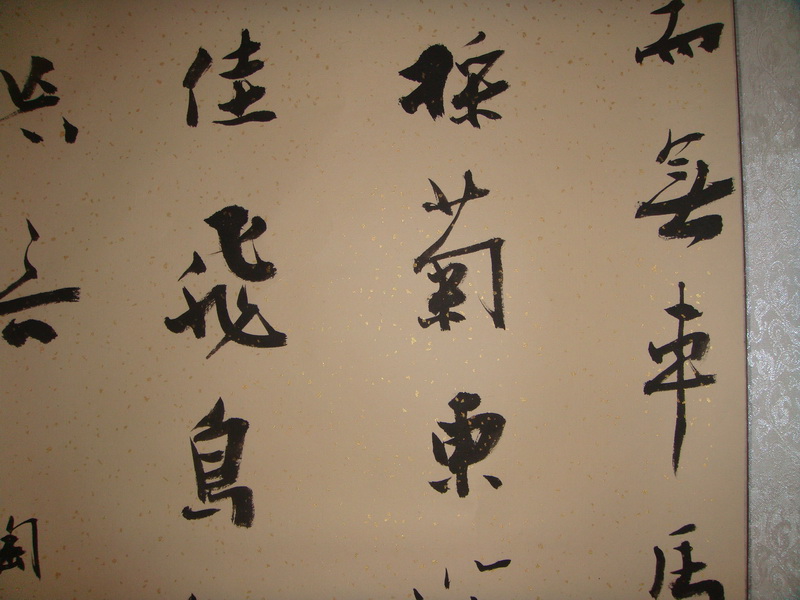 而無車馬
採菊東
佳飛鳥
言